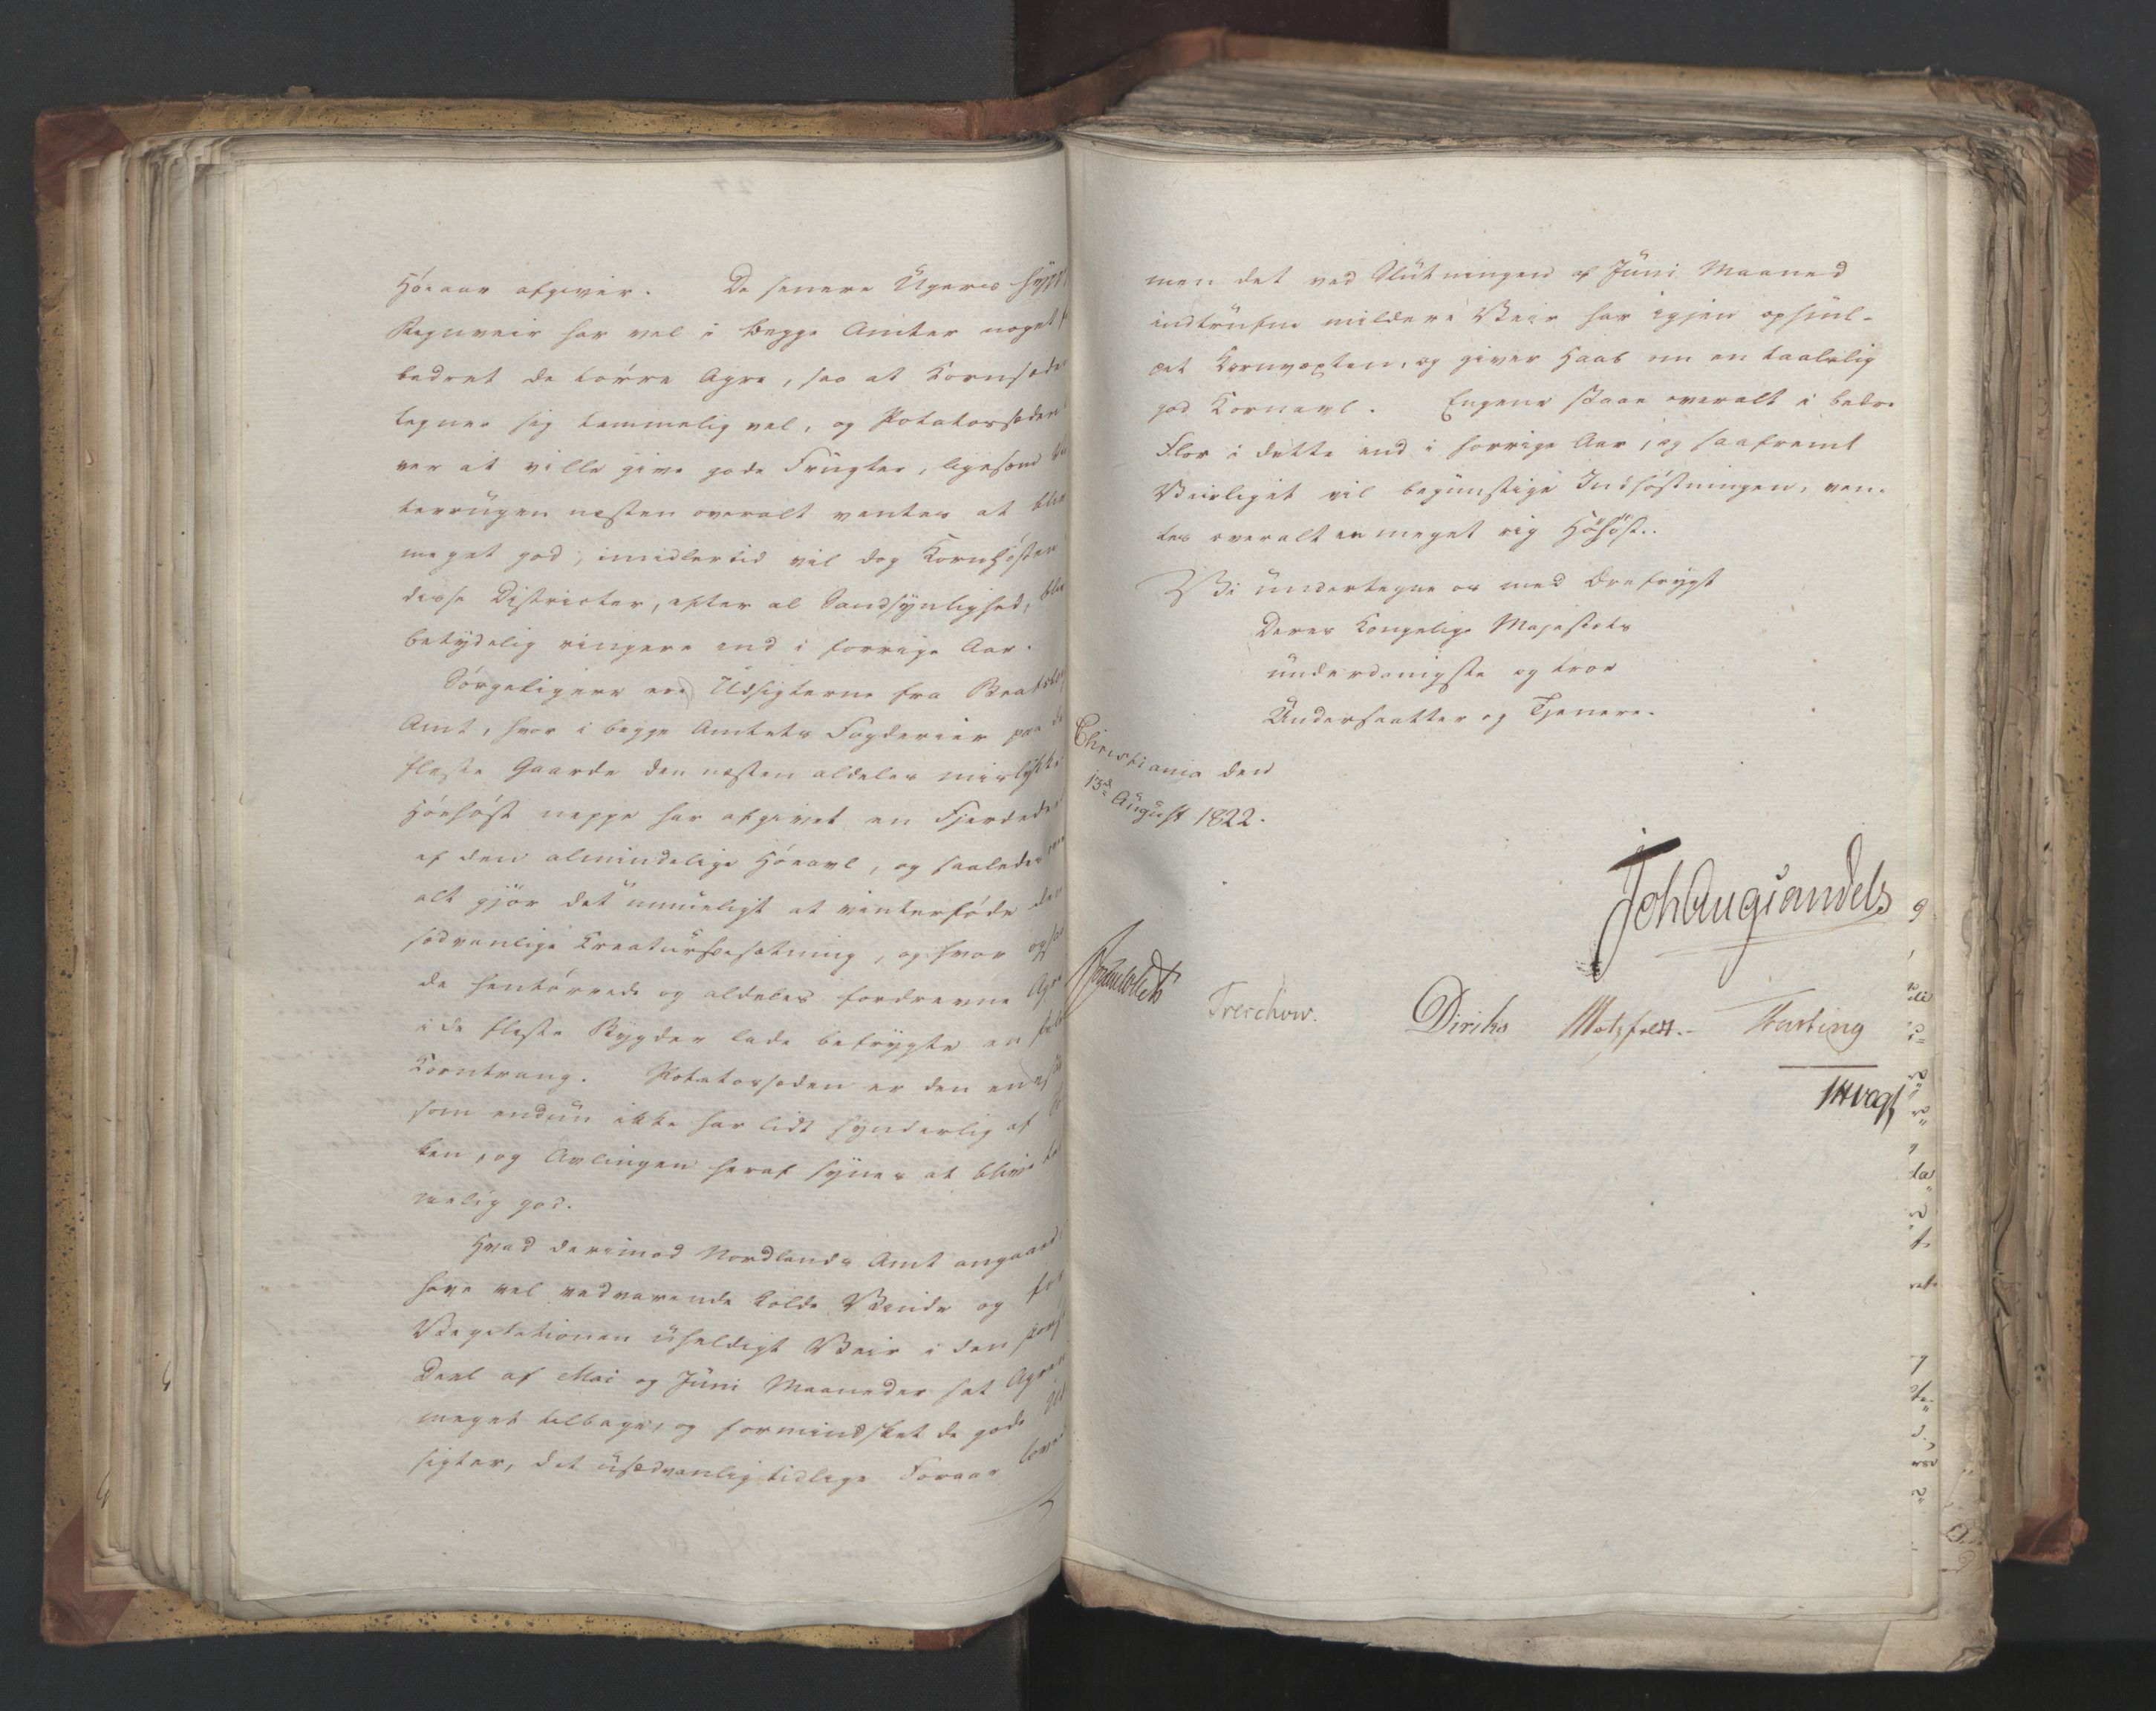 Höeaar afgiver. De senere Ugers hypp
Regnveir har vel i begge Amter noget
bedret de tørre Agre, saa at Kornsæden
tegner sig temmelig vel, og Potatossæden
ver at ville give gode Frugter, ligesom
terrugen næsten overalt ventes at blive
meget god; imidlertid vil dog Kornhøsten
disse Districter, efter al Sandsynlighed, blive
betydelig ringere end i forrige Aar.
Sørgeligere ere Udsigterne fra Bratsberg
Amt, hvor i begge Amtets Fogderier paa de
fleste Gaarde den næsten aldeles mislykkede
Höehøst neppe har afgivet en Fjerdedeel
af den almindelige Höeavl, og saaledes over
alt gjør det umueligt at vinterføde den
sædvanlige Creatursbesætning, og hvor ogsaa
de hentørrede og aldeles fordrevne Agre
i de fleste Bygder lade befrygte en føle
Korntrang. Potatossæden er den eneste
som endnu ikke har lidt synderlig af
ken, og Avlingen heraf synes at blive tem
melig god.
Hvad derimod Nordlands Amt angaaer,
have vel vedvarende kolde Vinde og for
Vegetationen uheldigt Veir i den største
Deel af Mai og Juni Maaneder sat Agrene
meget tilbage, og formindsket de gode Ud
sigter, det usædvanlig tidlige Foraar lovede
men det ved Slutningen af Juni Maaned
indtrufne mildere Veir har igjen ophjul-
pet Kornvæxten, og giver Haab om en taalelig
god Kornavl. Engene staae overalt i bedre
Flor i dette end i forrige Aar, og saafremt
Veirliget vil begunstige Indhøstningen, ven-
tes overalt en meget rig Höhøst.
Vi undertegne os med Ærefrygt
Deres Kongelige Majestæts
underdanigste og troe
Undersaatter og Tjenere.
Christiania den
13de August 1822.
Joh Aug Sandels
Sommerhielm Treschow. Diriks Motzfeldt. Fasting
JHVogt